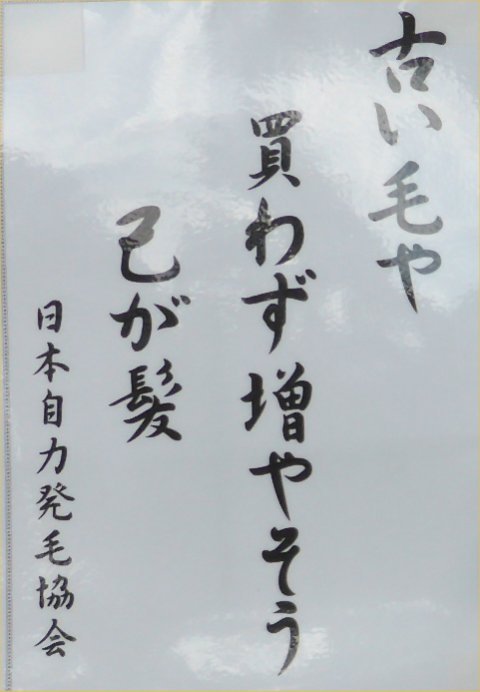 古い毛や
買わず増やそう
己が髪
日本自力発毛協会